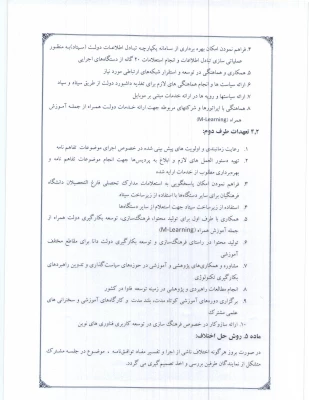 ۴. فراهم نمودن امکان بهره برداری از سامانه یکپارچه تبادل اطلاعات دولت (سیتاد) به منظور
عملیاتی سازی تبادل اطلاعات و انجام استعلامات ۲۰ گانه از دستگاه‌های اجرایی
۵. همکاری و هماهنگی در توسعه و استقرار شبکه‌های ارتباطی مورد نیاز
۶. ارائه سیاست ها و انجام هماهنگی های لازم برای تغذیه داشبورد دولت از طریق سیناد و سپاد
۷. ارائه سیاستها و رویه ها در ارائه خدمات مبتنی بر موبایل
۸. هماهنگی با اپراتورها و شرکتهای مربوطه جهت ارائه خدمات دولت همراه از جمله آموزش
همراه (M-Learning)
۲.۲ تعهدات طرف دوم:
۱. رعایت زمانبندی و اولویت های پیش بینی شده در خصوص اجرای موضوعات تفاهم نامه
۲. تهیه دستور العمل های لازم و ابلاغ به پردیس‌ها جهت انجام موضوعات تفاهم نامه و
بهره‌برداری مطلوب از خدمات ارایه شده
۳. فراهم نمودن امکان پاسخگویی به استعلامات مدارک تحصیلی فارغ التحصیلان دانشگاه
فرهنگیان برای سایر دستگاه‌ها با استفاده از زیرساخت سیناد
۴. استفاده از زیرساخت سیناد جهت استعلام از سایر دستگاهها
۵. همکاری با طرف اول برای تولید محتوا، فرهنگ‌سازی، توسعه بکارگیری دولت همراه از
جمله آموزش همراه (M-Learning)
۶. تولید محتوا در راستای فرهنگ‌سازی و توسعه بکارگیری دولت دانا برای مقاطع مختلف
آموزشی
۷. مشاوره و همکاری‌های پژوهشی و آموزشی در حوزه‌های سیاست‌گذاری و تدوین راهبردهای
بکارگیری تکنولوژی
۸. انجام مطالعات راهبردی و پژوهشی در زمینه توسعه فاوا در کشور
۹. برگزاری دوره‌های آموزشی کوتاه مدت، بلند مدت و کارگاه‌های آموزشی و سخنرانی های
علمی مشترک
۱۰. ارائه سازوکار در خصوص فرهنگ سازی در توسعه کاربری فناوری های نوین
ماده ۵. روش حل اختلاف:
در صورت بروز هرگونه اختلاف ناشی از اجرا و تفسیر مفاد توافق‌نامه ، موضوع در جلسه مشترک
متشکل از نمایندگان طرفین بررسی و اخذ تصمیم‌گیری می گردد.